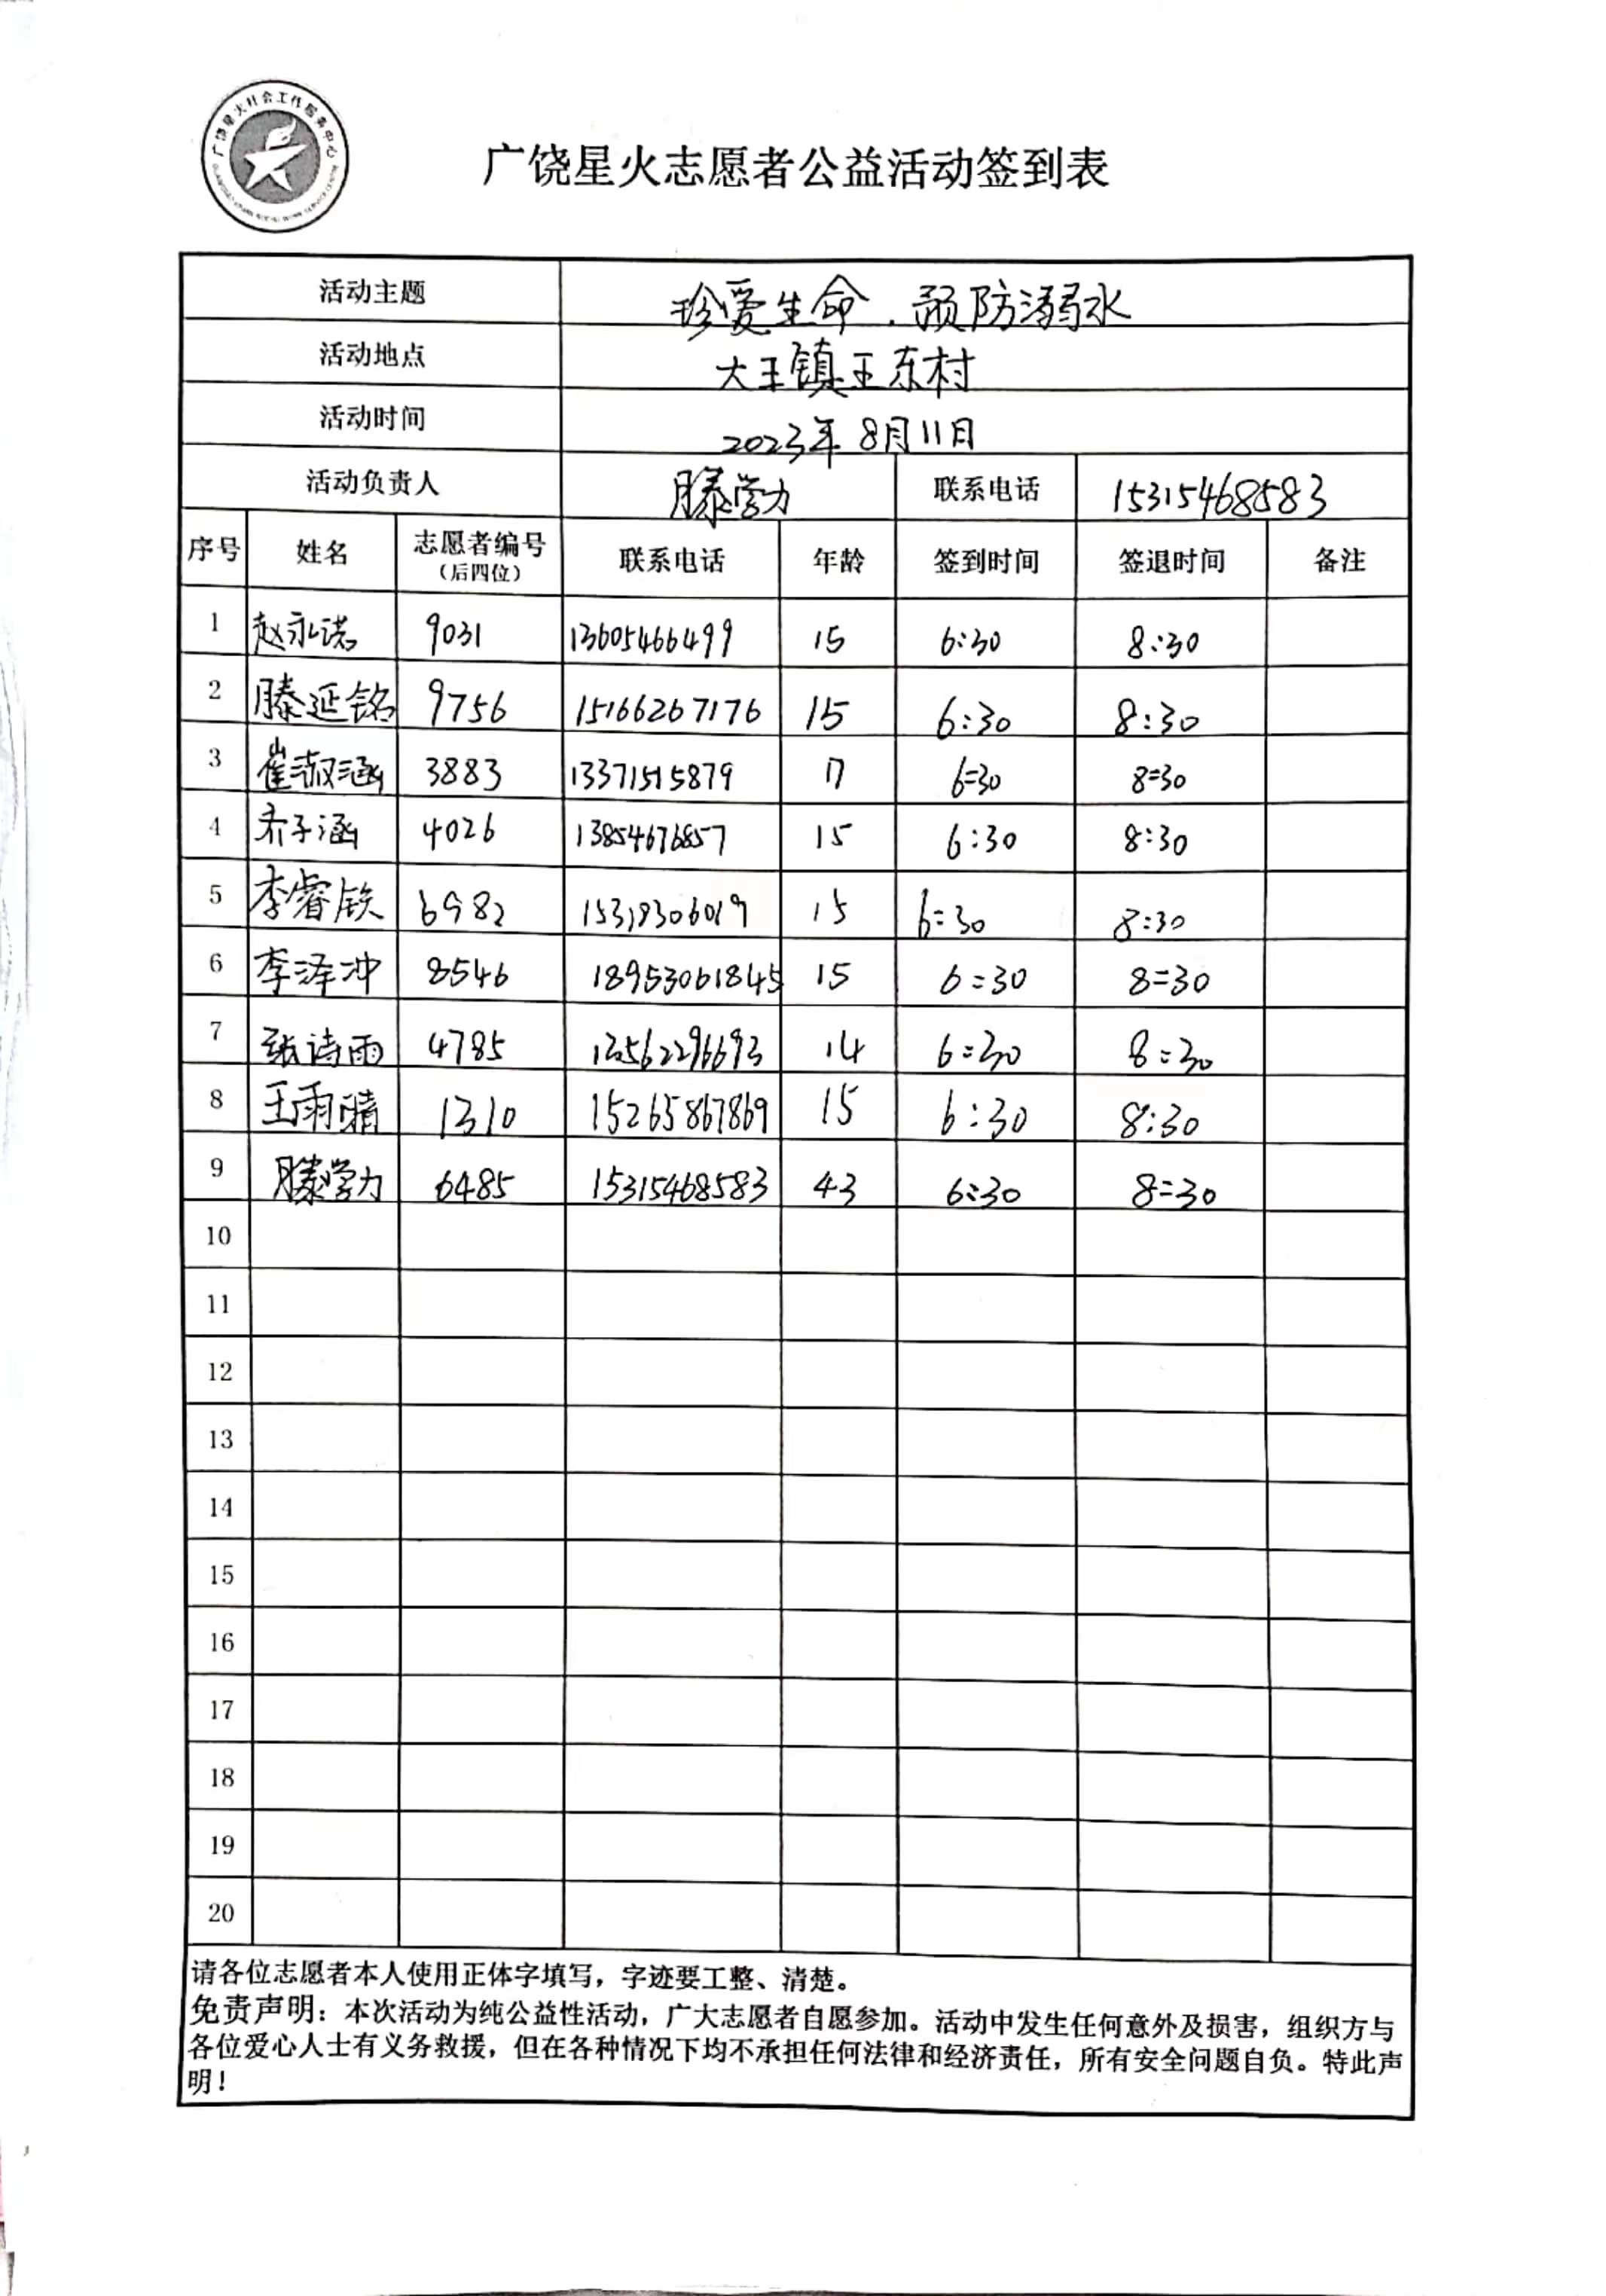 广饶星火社会工作服务中心
广饶星火志愿者公益活动签到表
活动主题 珍爱生命.预防溺水
活动地点 大王镇王东村
活动时间 2023年8月11日
活动负责人 滕学力 联系电话 15315468583
序号 姓名 志愿者编号(后四位) 联系电话 年龄 签到时间 签退时间 备注
1 赵永诺 9031 13605466499 15 6:30 8:30
2 滕延铭 9756 15166267176 15 6:30 8:30
3 崔淑涵 3883 13371515879 17 6:30 8:30
4 乔子涵 4026 13854676857 15 6:30 8:30
5 李睿 6982 15318306019 15 6:30 8:30
6 李泽冲 8546 18953061845 15 6:30 8:30
7 张诗雨 4785 13562296693 14 6:30 8:30
8 王雨晴 1310 15265867869 15 6:30 8:30
9 滕学力 6485 15315468583 43 6:30 8:30
10
11
12
13
14
15
16
17
18
19
20
请各位志愿者本人使用正体字填写，字迹要工整、清楚。
免责声明：本次活动为纯公益性活动，广大志愿者自愿参加。活动中发生任何意外及损害，组织方与
各位爱心人士有义务救援，但在各种情况下均不承担任何法律和经济责任，所有安全问题自负。特此声
明！